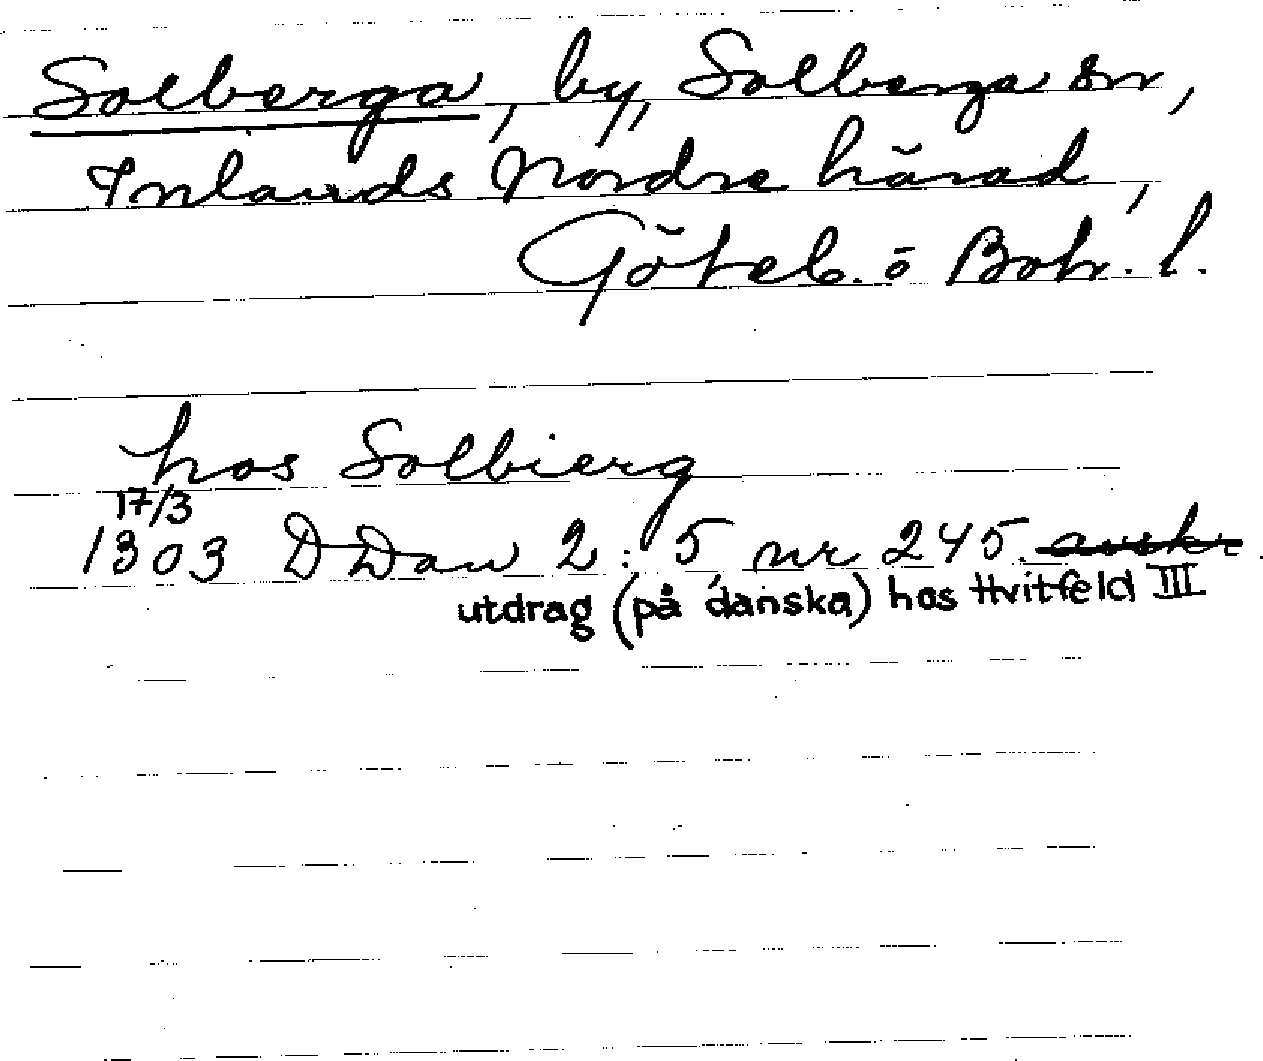 Solberga, by, Solberga sn,
Inlands Nordre härad,
Göteb. o Boh. l.
hos Solbierg
17/3
1303 DDan 2:5, nr 245. avskr.
utdrag (på danska) hos Hvitfeld III